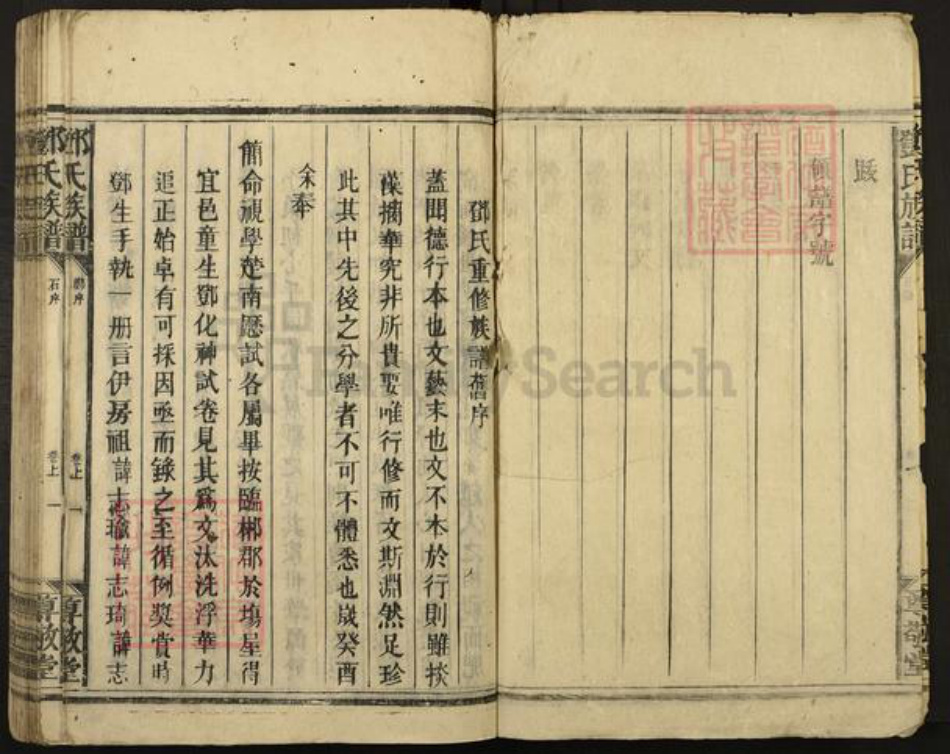 跋
領譜字號
鄧氏族譜
敬堂
鄧氏重修族譜舊序
蓋聞德行本也文藝末也文不本於行則雖掞
藻摛華究非所貴要唯行修而文斯淵然足珍
此其中先後之分學者不可不體悉也歲癸酉
余奉
簡命視學楚南歷試各屬畢按臨郴郡於塲呈得
宜邑童生鄧化神試卷見其爲文汰洗浮華力
追正始卓有可採因亟而錄之至循例奬賞時
鄧生手執一册言伊房祖諱志瑜諱志琦諱志
鄧氏族譜
序
卷上
一
敦堂
鄧氏族譜
石序
卷上
一
敦堂
FamilySearch